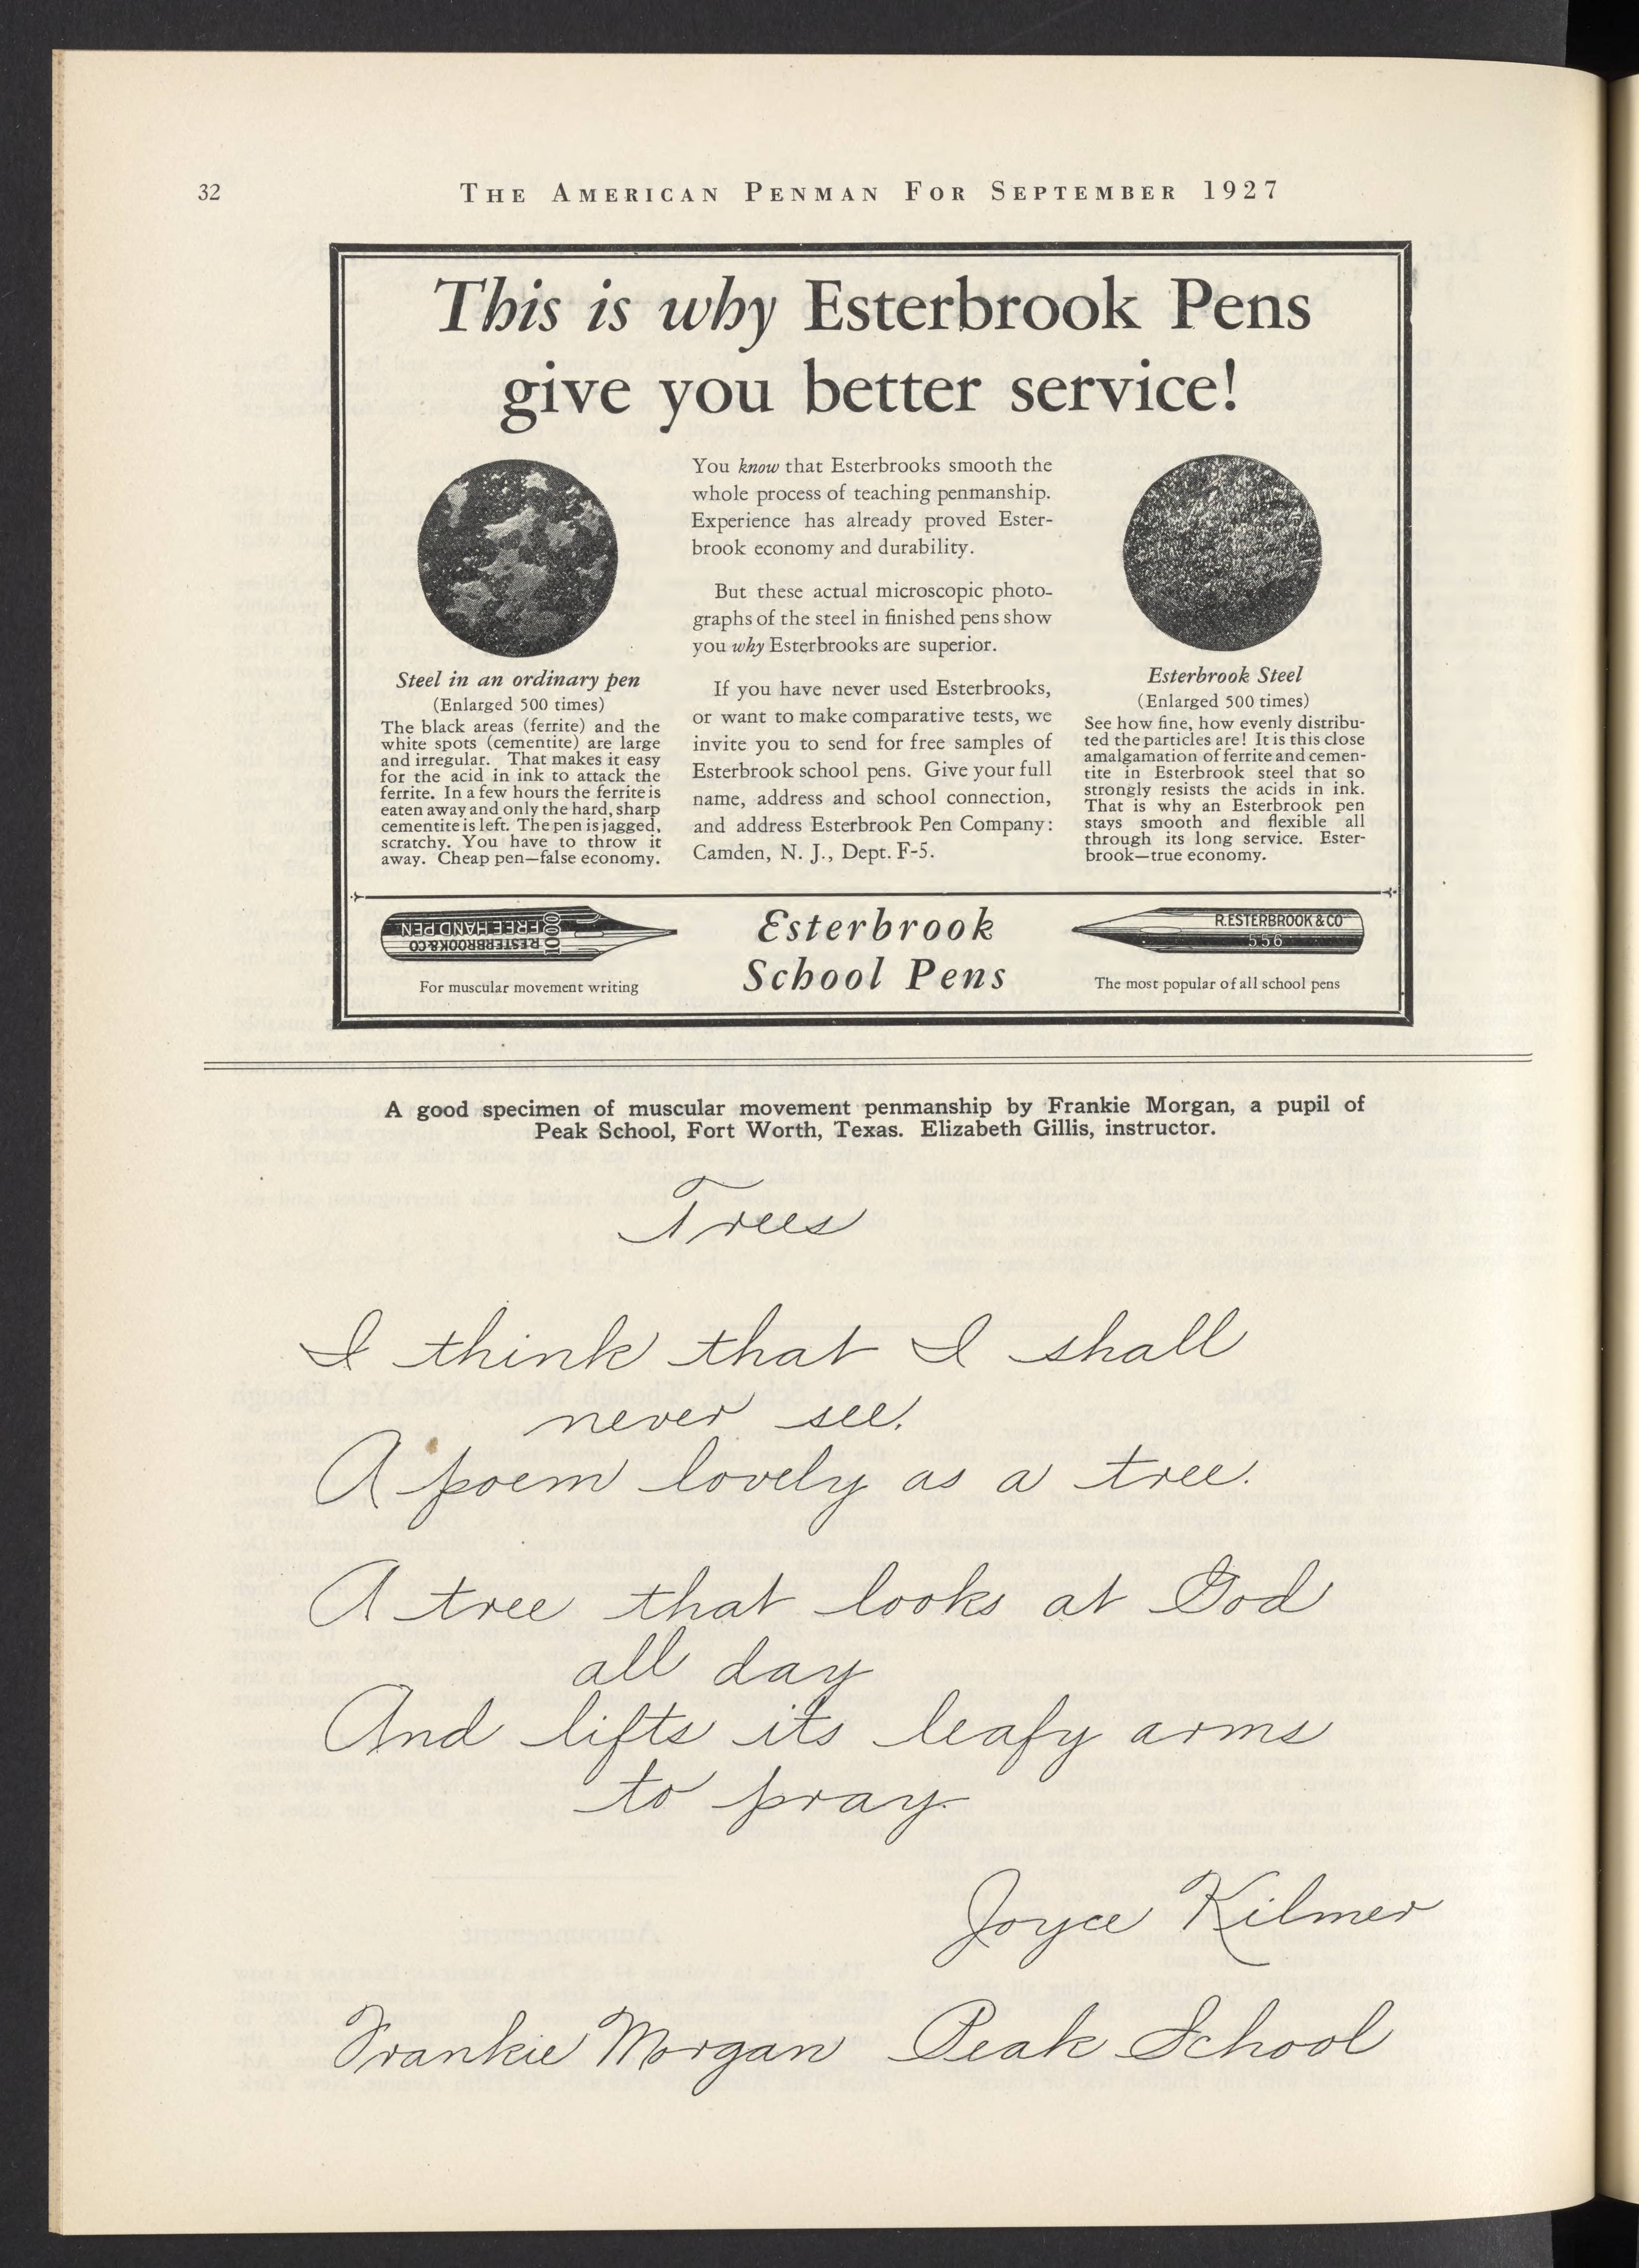 32
THE AMERICAN PENMAN FOR SEPTEMBER 1927
This is why Esterbrook Pens
give you better service!
Steel in an ordinary pen
(Enlarged 500 times)
The black areas (ferrite) and the
white spots (cementite) are large
and irregular. That makes it easy
for the acid in ink to attack the
ferrite. In a few hours the ferrite is
eaten away and only the hard, sharp
cementite is left. The pen is jagged,
scratchy. You have to throw it
away. Cheap pen—false economy.
You know that Esterbrooks smooth the
whole process of teaching penmanship.
Experience has already proved Ester-
brook economy and durability.
But these actual microscopic photo-
graphs of the steel in finished pens show
you why Esterbrooks are superior.
If you have never used Esterbrooks,
or want to make comparative tests, we
invite you to send for free samples of
Esterbrook school pens. Give your full
name, address and school connection,
and address Esterbrook Pen Company:
Camden, N. J., Dept. F-5.
Esterbrook Steel
(Enlarged 500 times)
See how fine, how evenly distribu-
ted the particles are! It is this close
amalgamation of ferrite and cemen-
tite in Esterbrook steel that so
strongly resists the acids in ink.
That is why an Esterbrook pen
stays smooth and flexible all
through its long service. Ester-
brook—true economy.
R ESTERBROOK & CO
FREE HAND PEN
1000
For muscular movement writing
Esterbrook
School Pens
R. ESTERBROOK & CO
556
The most popular of all school pens
A good specimen of muscular movement penmanship by Frankie Morgan, a pupil of
Peak School, Fort Worth, Texas. Elizabeth Gillis, instructor.
Trees
I think that I shall
never see.
A poem lovely as a tree.
A tree that looks at God
all day
And lifts its leafy arms
to pray.
Joyce Kilmer
Frankie Morgan Peak School